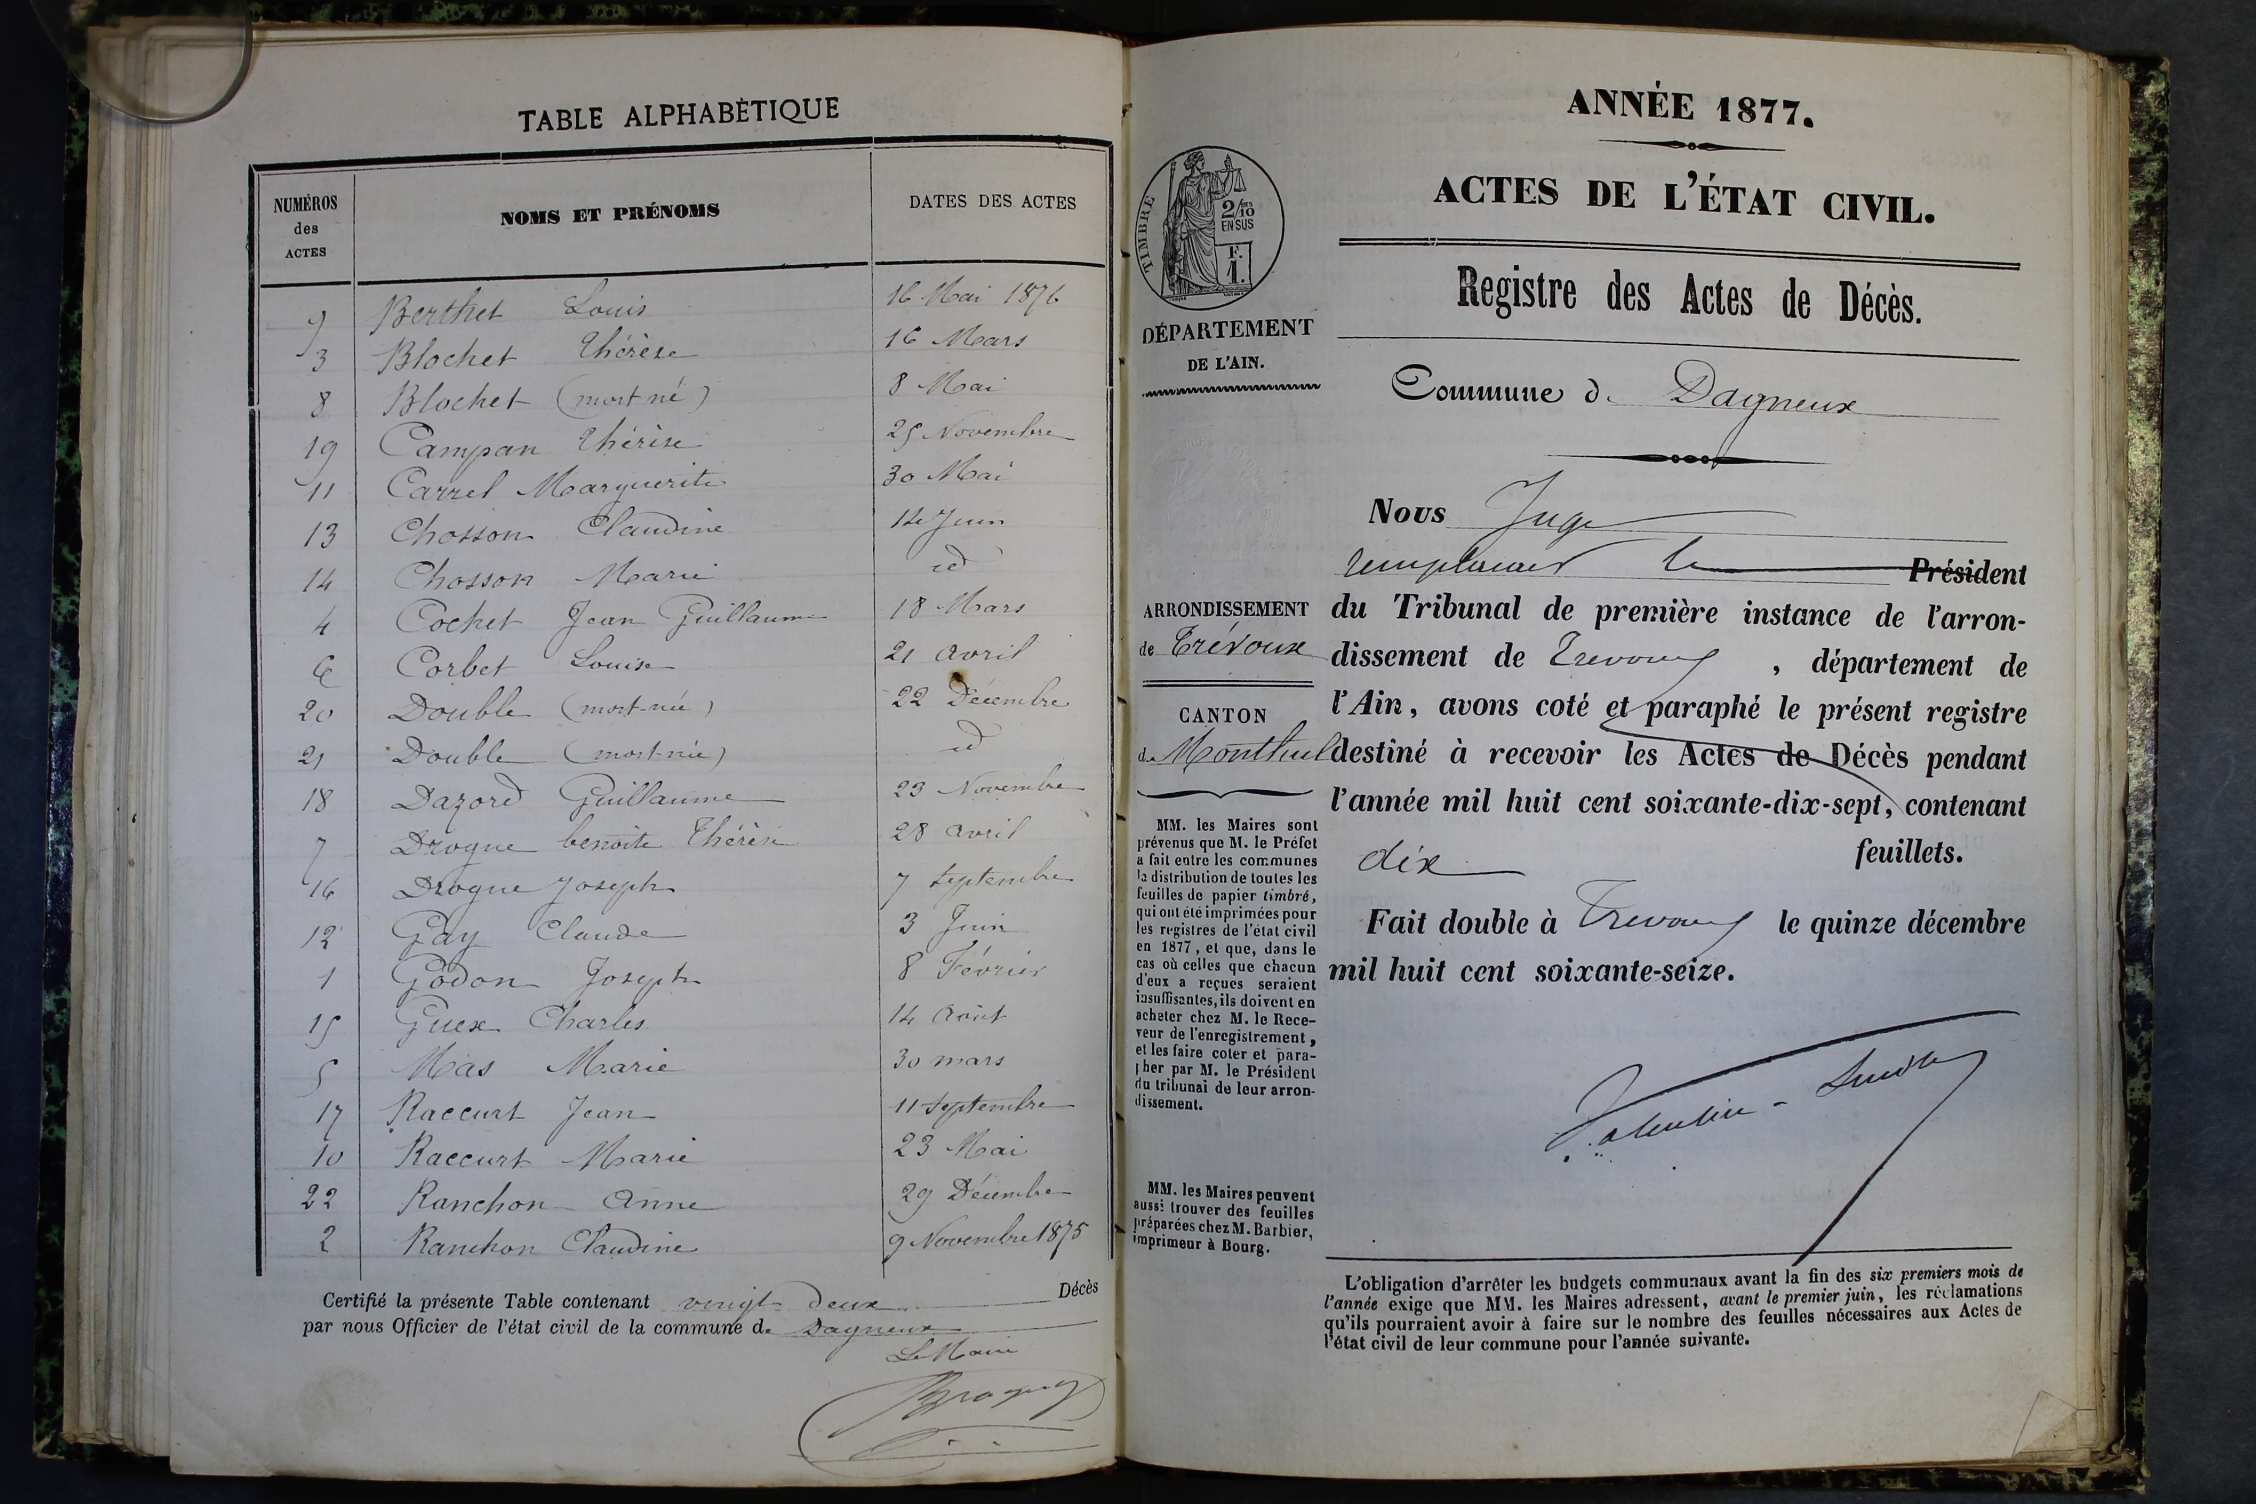 TABLE ALPHABÉTIQUE
NUMÉROS des ACTES NOMS ET PRÉNOMS DATES DES ACTES
9 Berthet Louis 16 Mai 1876
3 Blochet Thérèse 16 Mars
8 Blochet (mort né) 8 Mai
19 Campan Thérèse 25 Novembre
11 Carrel Marguerite 30 Mai
13 Chosson Claudine 14 Juin
14 Chosson Marie id
4 Cochet Jean Guillaume 18 Mars
6 Corbet Louise 21 avril
20 Double (mort-née) 22 Décembre
21 Double (mort-née) id
18 Dazord Guillaume 23 Novembre
7 Drogue benoite Thérèse 28 avril
16 Drogue Joseph 7 septembre
12 Gay Claude 3 Juin
1 Godon Joseph 8 Février
15 Guex Charles 14 Août
5 Mas Marie 30 mars
17 Raccurt Jean 11 septembre
10 Raccurt Marie 23 Mai
22 Ranchon Anne 29 Décembre
2 Ranchon Claudine 9 Novembre 1875
Certifié la présente Table contenant vingt deux Décès
par nous Officier de l'état civil de la commune de Dagneux
Le Maire
ANNÉE 1877.
ACTES DE L'ÉTAT CIVIL.
TIMBRE
2/10
EN SUS
F.
1.
DÉPARTEMENT
DE L'AIN.
ARRONDISSEMENT
de Trévoux
CANTON
de Montluel
MM. les Maires sont
prévenus que M. le Préfet
a fait entre les communes
la distribution de toutes les
feuilles de papier timbré,
qui ont été imprimées pour
les registres de l'état civil
en 1877, et que, dans le
cas où celles que chacun
d'eux a reçues seraient
insuffisantes, ils doivent en
acheter chez M. le Rece-
veur de l'enregistrement,
et les faire coter et para-
pher par M. le Président
du tribunal de leur arron-
dissement.
MM. les Maires peuvent
aussi trouver des feuilles
préparées chez M. Barbier,
imprimeur à Bourg.
Registre des Actes de Décès.
Commune de Dagneux
Nous Juge
remplaçant le Président
du Tribunal de première instance de l'arron-
dissement de Trevoux, département de
l'Ain, avons coté et paraphé le présent registre
destiné à recevoir les Actes de Décès pendant
l'année mil huit cent soixante-dix-sept, contenant
dix feuillets.
Fait double à Trevoux le quinze décembre
mil huit cent soixante-seize.
L'obligation d'arrêter les budgets communaux avant la fin des six premiers mois de
l'année exige que MM. les Maires adressent, avant le premier juin, les réclamations
qu'ils pourraient avoir à faire sur le nombre des feuilles nécessaires aux Actes de
l'état civil de leur commune pour l'année suivante.